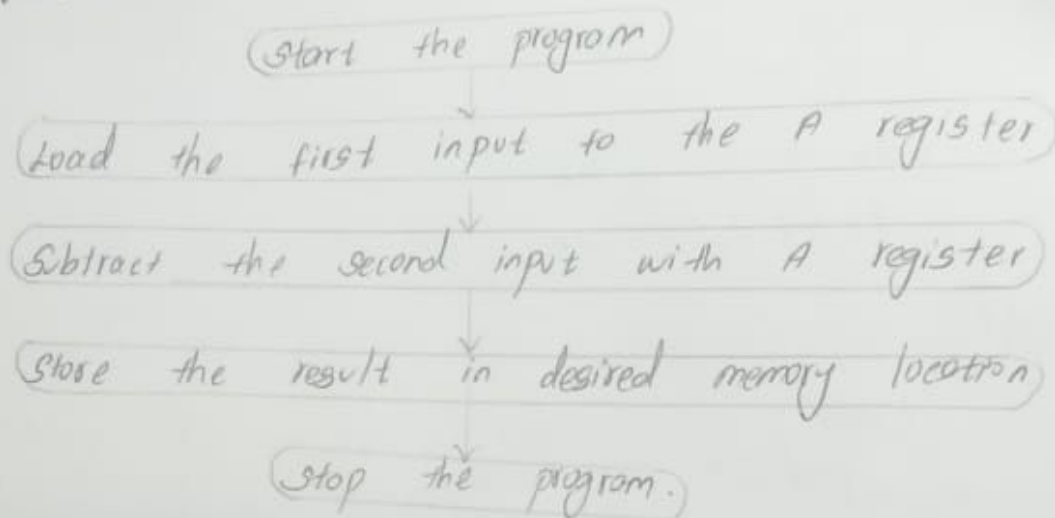 Start the program
Load the first input to the A register
Subtract the second input with A register
Store the result in desired memory location
Stop the program.